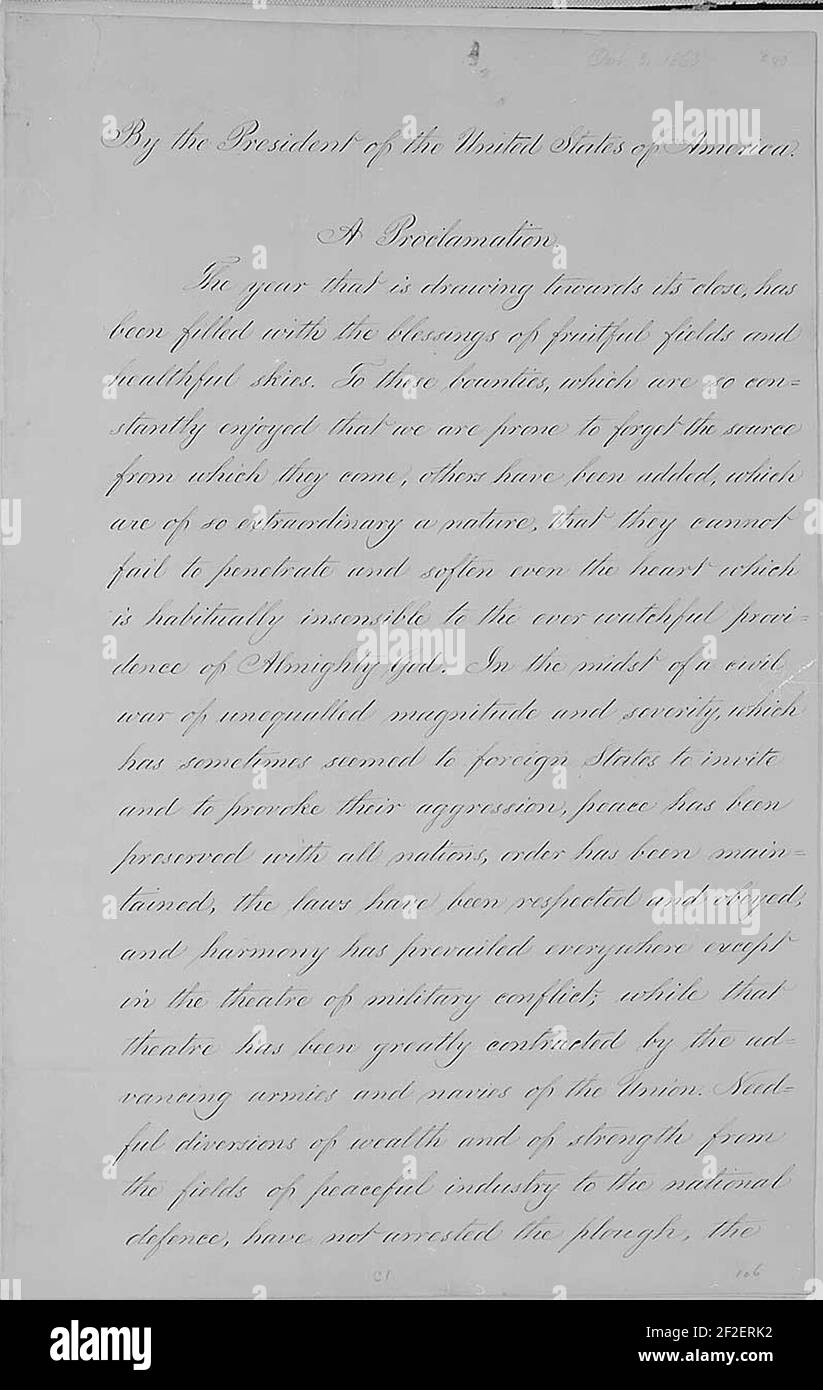 Oct. 3, 1863
By the President of the United States of America.
A Proclamation.
The year that is drawing towards its close, has
been filled with the blessings of fruitful fields and
healthful skies. To these bounties, which are so con=
stantly enjoyed that we are prone to forget the source
from which they come, others have been added, which
are of so extraordinary a nature, that they cannot
fail to penetrate and soften even the heart which
is habitually insensible to the ever watchful provi=
dence of Almighty God. In the midst of a civil
war of unequalled magnitude and severity, which
has sometimes seemed to foreign States to invite
and to provoke their aggression, peace has been
preserved with all nations, order has been main=
tained, the laws have been respected and obeyed,
and harmony has prevailed everywhere except
in the theatre of military conflict; while that
theatre has been greatly contracted by the ad=
vancing armies and navies of the Union. Need=
ful diversions of wealth and of strength from
the fields of peaceful industry to the national
defence, have not arrested the plough, the
106
alamy
Image ID: 2F2ERK2
www.alamy.com